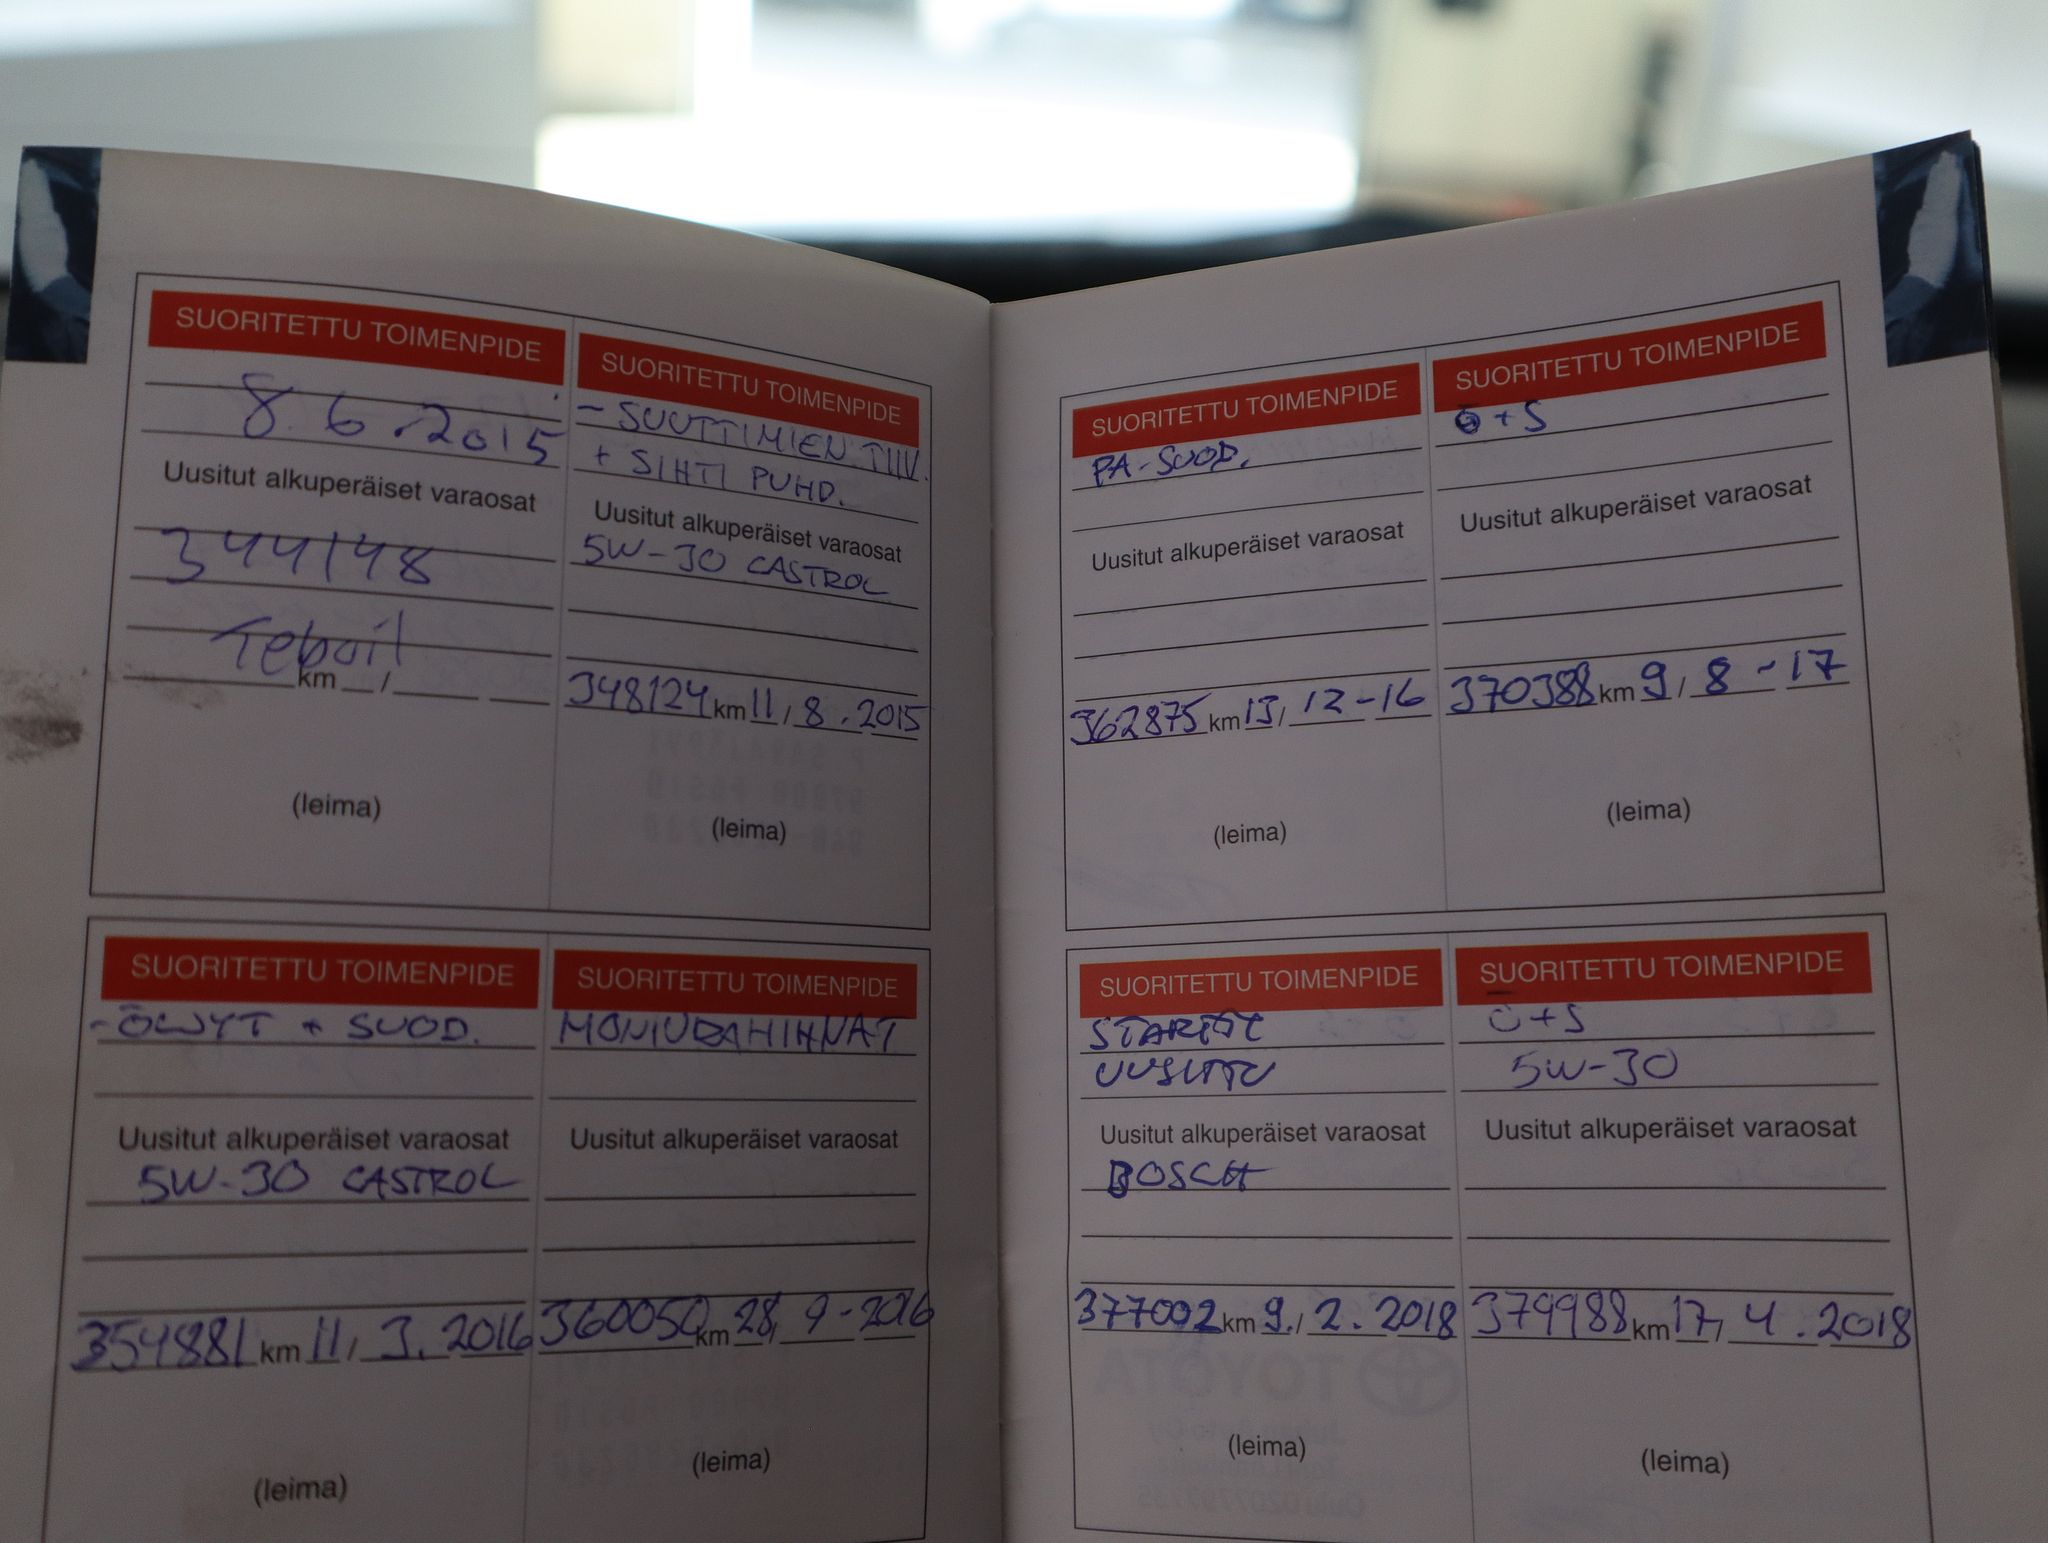 SUORITETTU TOIMENPIDE
8.6.2015
Uusitut alkuperäiset varaosat
344148
Teboil
km /
(leima)
SUORITETTU TOIMENPIDE
- SUUTTIMIEN TIIV.
+ SIHTI PUHD.
Uusitut alkuperäiset varaosat
5W-30 CASTROL
348124 km 11 / 8 . 2015
(leima)
SUORITETTU TOIMENPIDE
- ÖLJYT + SUOD.
Uusitut alkuperäiset varaosat
5W-30 CASTROL
354881 km 11 / 3. 2016
(leima)
SUORITETTU TOIMENPIDE
MONIURAHIHNAT
Uusitut alkuperäiset varaosat
360050 km 28 / 9 - 2016
(leima)
SUORITETTU TOIMENPIDE
PA-SUOD.
Uusitut alkuperäiset varaosat
362875 km 13 / 12 - 16
(leima)
SUORITETTU TOIMENPIDE
Ö + S
Uusitut alkuperäiset varaosat
370388 km 9 / 8 - 17
(leima)
SUORITETTU TOIMENPIDE
STARTTI
UUSITTU
Uusitut alkuperäiset varaosat
BOSCH
377002 km 9. / 2. 2018
(leima)
SUORITETTU TOIMENPIDE
Ö+S
5W-30
Uusitut alkuperäiset varaosat
379988 km 17 / 4 . 2018
(leima)
TOYOTA